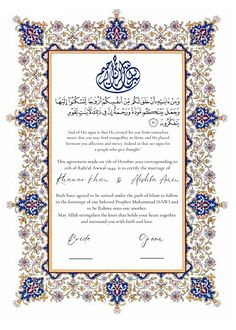 بسم الله الرحمن الرحيم
وَمِنْ ءَايَٰتِهِۦٓ أَنْ خَلَقَ لَكُم مِّنْ أَنفُسِكُمْ أَزْوَٰجًا لِّتَسْكُنُوٓا۟ إِلَيْهَا
وَجَعَلَ بَيْنَكُم مَّوَدَّةً وَرَحْمَةً إِنَّ فِى ذَٰلِكَ لَءَايَٰتٍ لِّقَوْمٍ
يَتَفَكَّرُونَ ﴿٢١﴾
And of His signs is that He created for you from yourselves
mates that you may find tranquillity in them, and He placed
between you affection and mercy. Indeed in that are signs for
a people who give thought."
This agreement made on 7th of October 2022 corresponding to
11th of Rabi'ul Awwal 1444, is to certify the marriage of
Khawar Khan & Alishba Amin
Both have agreed to be united under the path of Islam to follow
in the footsteps of our beloved Prophet Muhammad (SAW) and
to be Rahma onto one another.
May Allah strengthen the knot that holds your heart together
and surround you with faith and love.
Bride Groom